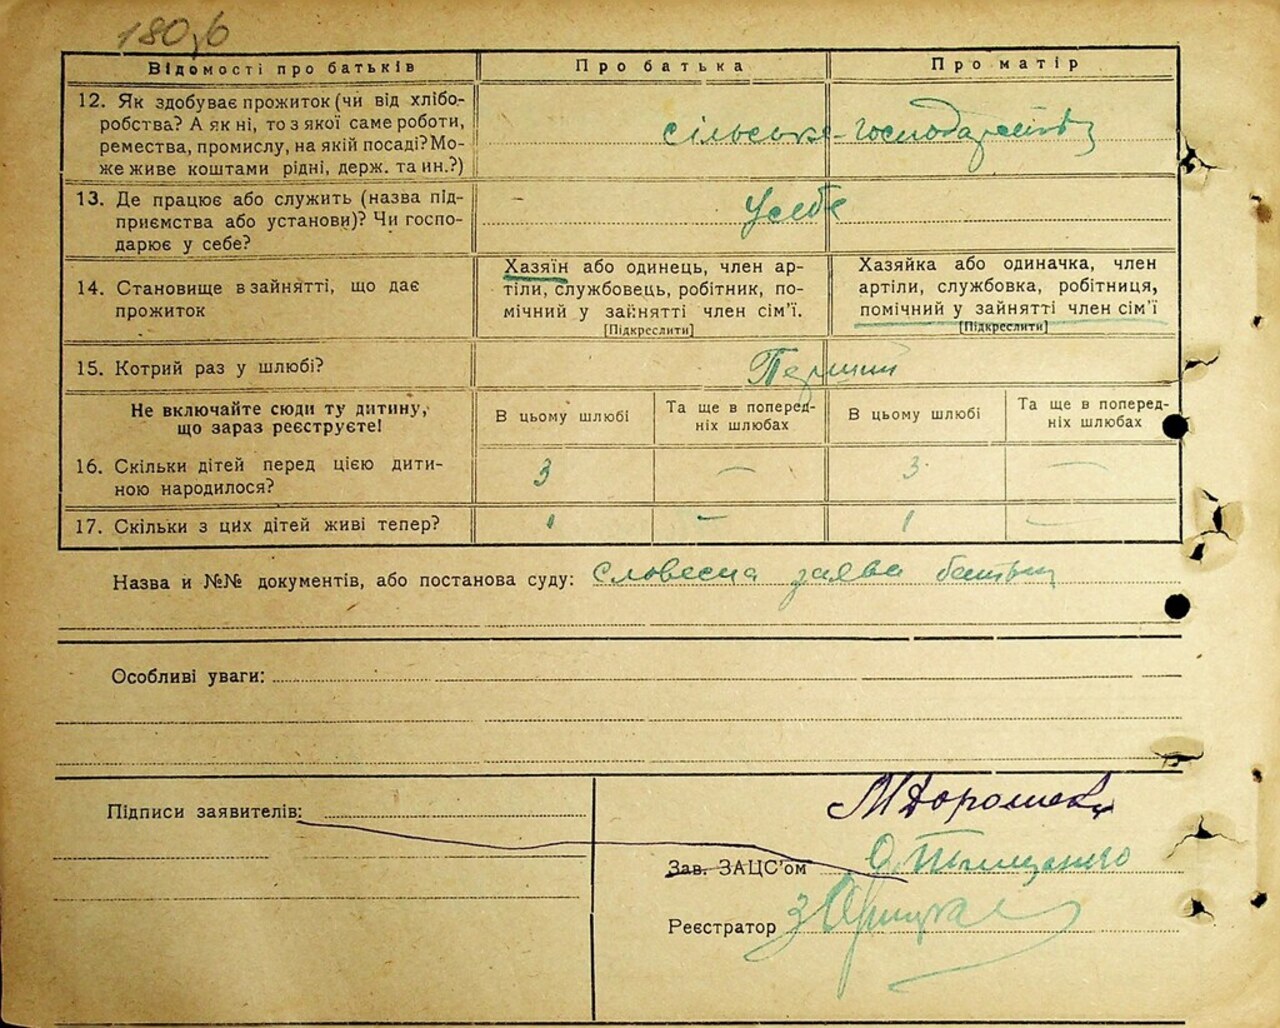 180
Відомості про батьків
Про батька
Про матір
12. Як здобуває прожиток (чи від хлібо-
робства? А як ні, то з якої саме роботи,
ремества, промислу, на якій посаді? Мо-
же живе коштами рідні, держ. та ин.?)
сільське-господарство
13. Де працює або служить (назва під-
приємства або установи)? Чи госпо-
дарює у себе?
У себе
14. Становище в зайнятті, що дає
прожиток
Хазяїн або одинець, член ар-
тіли, службовець, робітник, по-
мічний у зайнятті член сім’ї.
[Підкреслити]
Хазяйка або одиначка, член
артіли, службовка, робітниця,
помічний у зайнятті член сім’ї
[Підкреслити]
15. Котрий раз у шлюбі?
Перший
Не включайте сюди ту дитину,
що зараз реєструєте!
В цьому шлюбі
Та ще в поперед-
ніх шлюбах
В цьому шлюбі
Та ще в поперед-
ніх шлюбах
16. Скільки дітей перед цією дити-
ною народилося?
3 — 3 —
17. Скільки з цих дітей живі тепер?
1 — 1 —
Назва й №№ документів, або постанова суду: Словесна заява батька
Особливі уваги:
Підписи заявителів:
М Дорошенко
Зав. ЗАЦС’ом О. Тимщенко
Реєстратор